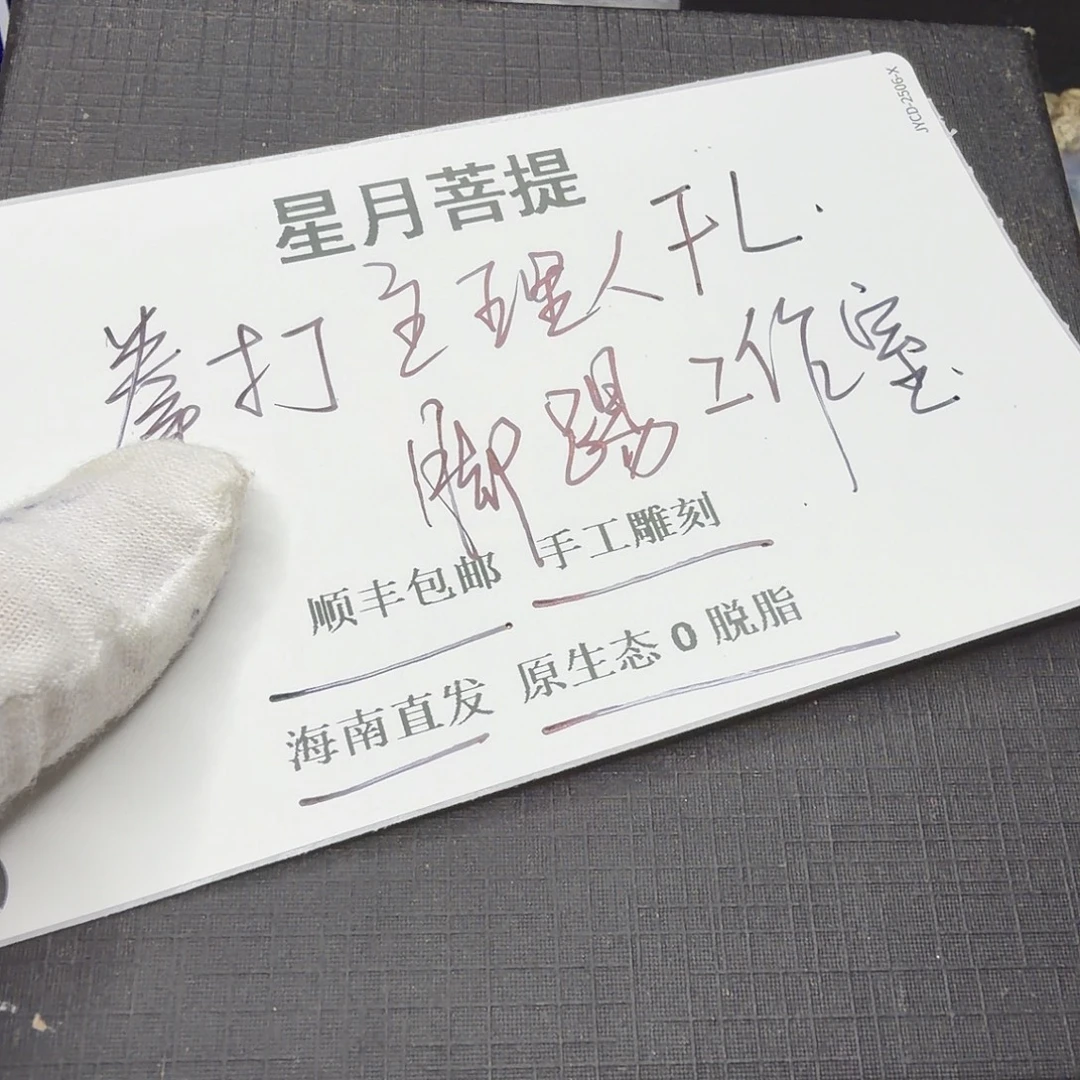 星月菩提
拳打主理人干孔
脚踢工作室
顺丰包邮 手工雕刻
海南直发 原生态0脱脂
JYCD-2506-X